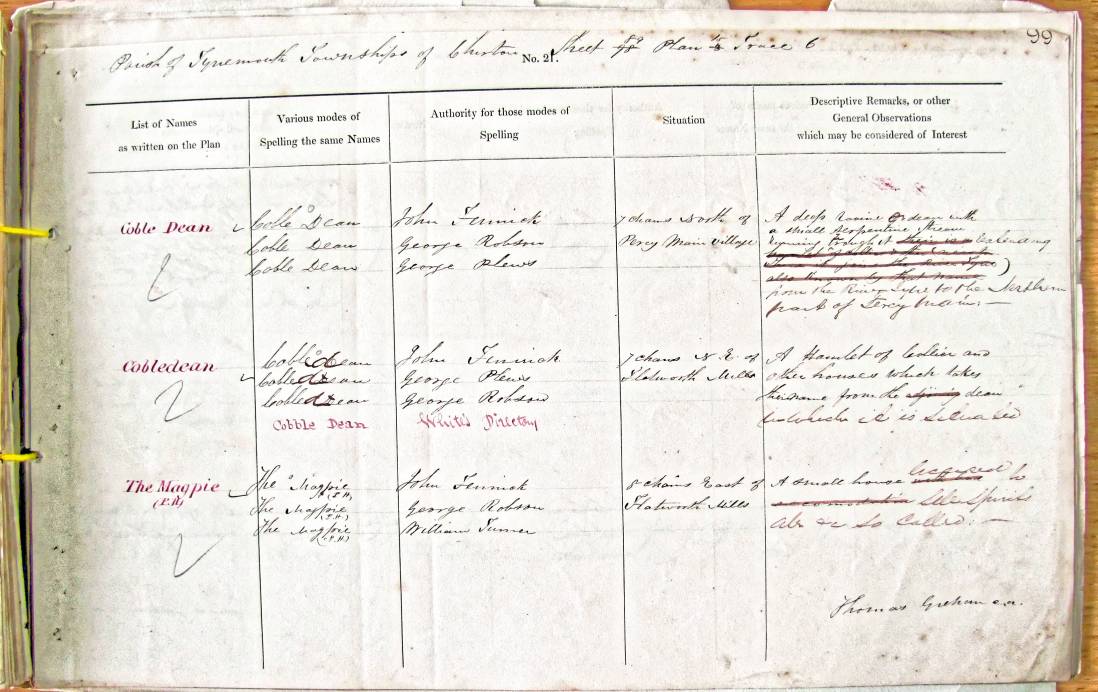 99
Parish of Tynemouth Townships of Chirton No. 21. Sheet 89 Plan 6 Trace 6
List of Names
as written on the Plan
Various modes of
Spelling the same Names
Authority for those modes of
Spelling
Situation
Descriptive Remarks, or other
General Observations
which may be considered of Interest
Coble Dean
Coble Dean
Coble Dean
Coble Dean
John Fenwick
George Robson
George Plews
7 chains North of
Percy Main Village
A deep ravine or dean with
a small serpentine stream
running through it extending
from the River side to the Northern
part of Percy Main. —
Cobledean
Cobledean
Cobledean
Cobledean
Cobble Dean
John Fenwick
George Plews
George Robson
White's Directory
7 chains N.E. of
Flatworth Mills
A Hamlet of Collier and
other houses which takes
their name from the dean
in which it is situated
The Magpie
(P.H)
The Magpie
(P.H)
The Magpie
(P.H)
The Magpie
(P.H)
John Fenwick
George Robson
William Turner
8 chains East of
Flatworth Mills
A small house licensed to
Sell Spirits
Ale &c So Called: —
Thomas Graham c.a.